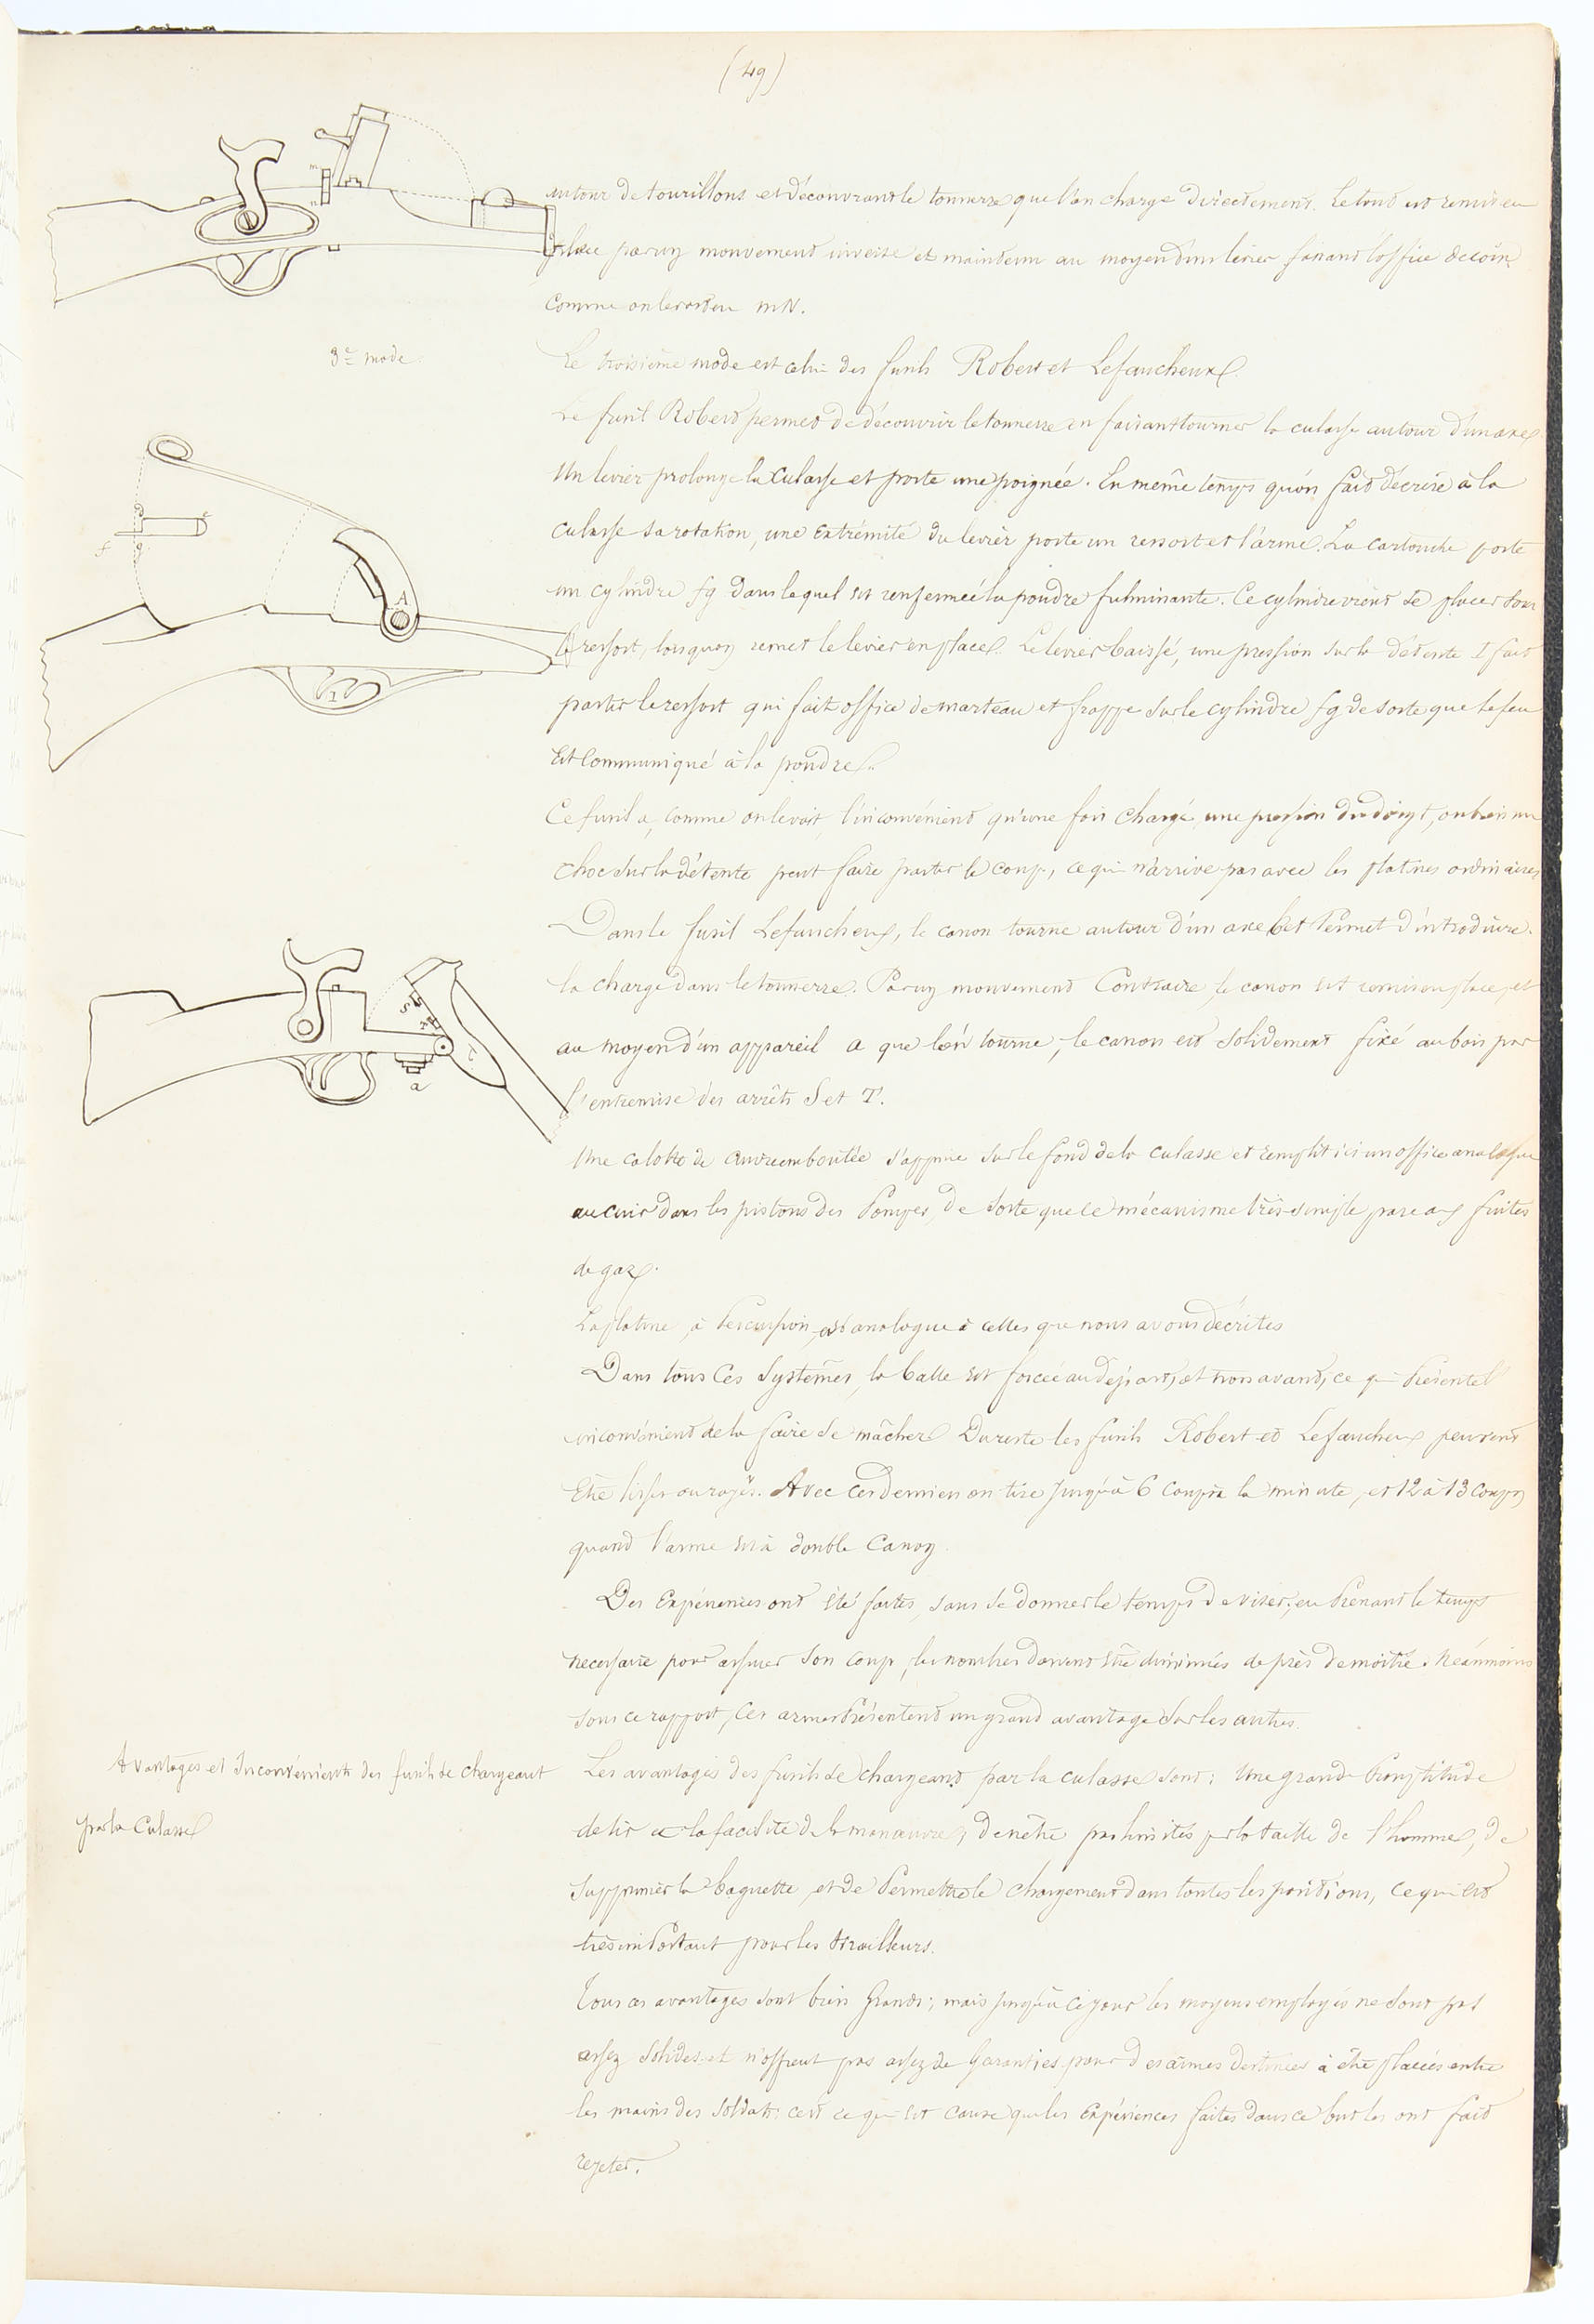 (49)
autour de tourillons et découvrant le tonnerre que l'on charge directement. Le tout est remis en
place par un mouvement inverse et maintenu au moyen d'un levier faisant l'office de coin
comme on le voit en mN.
3e mode
Le troisième mode est celui des fusils Robert et Lefaucheux.
Le fusil Robert permet de découvrir le tonnerre en faisant tourner la culasse autour d'un axe
Un levier prolonge la Culasse et porte une poignée. En même temps qu'on fait décrire à la
culasse sa rotation, une extrémité du levier porte un ressort et l'arme. La cartouche porte
un cylindre fg dans lequel est renfermée la poudre fulminante. Ce cylindre vient se placer sous
le ressort, lorsqu'on remet le levier en place. Le levier baissé, une pression sur la détente I fait
partir le ressort qui fait office de marteau et frappe sur le cylindre fg de sorte que le feu
Est Communiqué à la poudre.
Ce fusil a, comme on le voit, l'inconvénient qu'une fois chargé une pression du doigt, ou bien un
choc sur la détente peut faire partir le coup, ce qui n'arrive pas avec les platines ordinaires
Dans le fusil Lefaucheux, le canon tourne autour d'un axe b et Permet d'introduire
la charge dans le tonnerre. Par un mouvement Contraire, le canon est remis en place, et
au moyen d'un appareil a que l'on tourne, le canon est solidement fixé au bois par
l'entremise des arrêts S et T.
Une calotte de cuivre emboutée s'appuie sur le fond de la culasse et remplit ici un office analogue
au cuir dans les pistons des Pompes, de sorte que ce mécanisme très simple pare aux fuites
de gaz.
La platine, à Percussion, est analogue à celles que nous avons décrites
Dans tous Ces Systèmes, la balle est forcée au départ, et non avant, ce qui Présente l'
inconvénient de la faire se mâcher. Du reste les fusils Robert et Lefaucheux peuvent
Etre lisses ou rayés. Avec ces derniers on tire jusqu'à 6 coups à la minute, et 12 à 13 coups
quand l'arme est à double Canon.
Des Expériences ont été faites, sans se donner le temps de viser; en Prenant le temps
necessaire pour assurer son coup, les nombres doivent être diminués de près de moitié. Néanmoins
sous ce rapport, Ces armes Présentent un grand avantage sur les autres.
Avantages et Inconvénients des fusils se chargeant
par la Culasse
Les avantages des fusils se chargeant par la culasse sont: Une grande Promptitude
de tir et la facilité de la manœuvre, de n'être pas limités par la taille de l'homme, de
supprimer la baguette, et de Permettre le chargement dans toutes les positions, ce qui est
très important pour les tirailleurs.
Tous ces avantages sont bien Grands; mais jusqu'à ce jour les moyens employés ne sont pas
assez solides et n'offrent pas assez de Garanties pour des armes destinées à être placées entre
les mains des soldats: c'est ce qui est cause que les Expériences faites dans ce but les ont fait
rejeter.